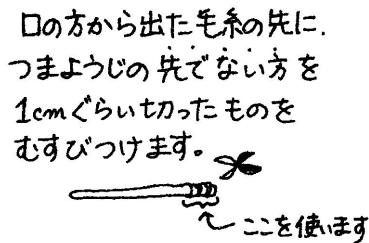 口の方から出た毛糸の先に、
つまようじの先でない方を
1cmぐらい切ったものを
むすびつけます。
ここを使います